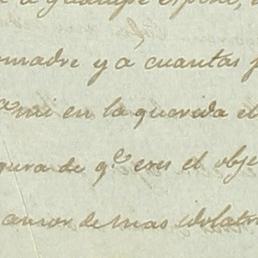 a guadalupe
madre y a cuantas
mi en la querida el
gura de q.e eres el obje
amor de mas idolatr